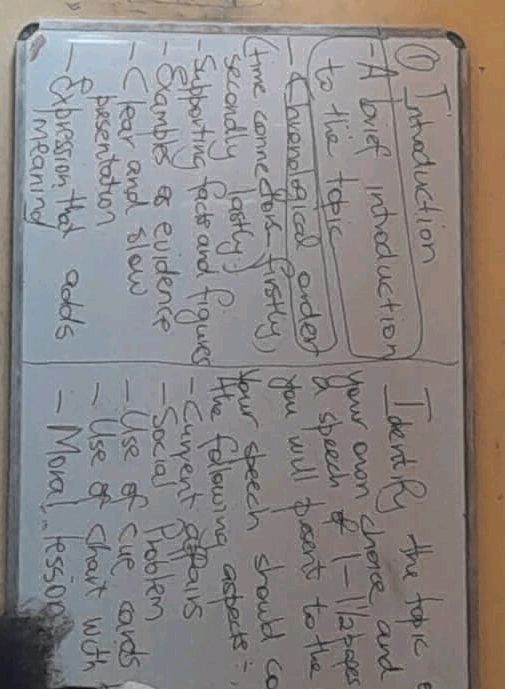 ① Introduction
- A brief introduction
to the topic
- Chronological order
(time connectors firstly,
secondly lastly)
- Supporting facts and figures
- Examples as evidence
- Clear and slow
presentation
- Expression that adds
meaning
Identify the topic
your own choice and
a speech of 1 - 1 1/2 pages
you will present to the
Your speech should co
the following aspects :-
- Current affairs
- Social Problem
- Use of cue cards
- Use of chart with
- Moral lesson